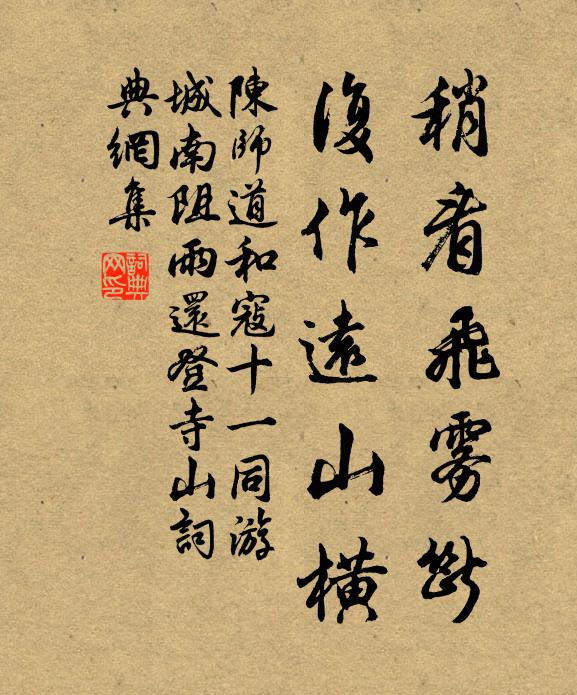 稍看飛雾斷
復作遠山橫
陳師道和寇十一同游
城南阻雨還登寺山詞
典網集
詞典網印